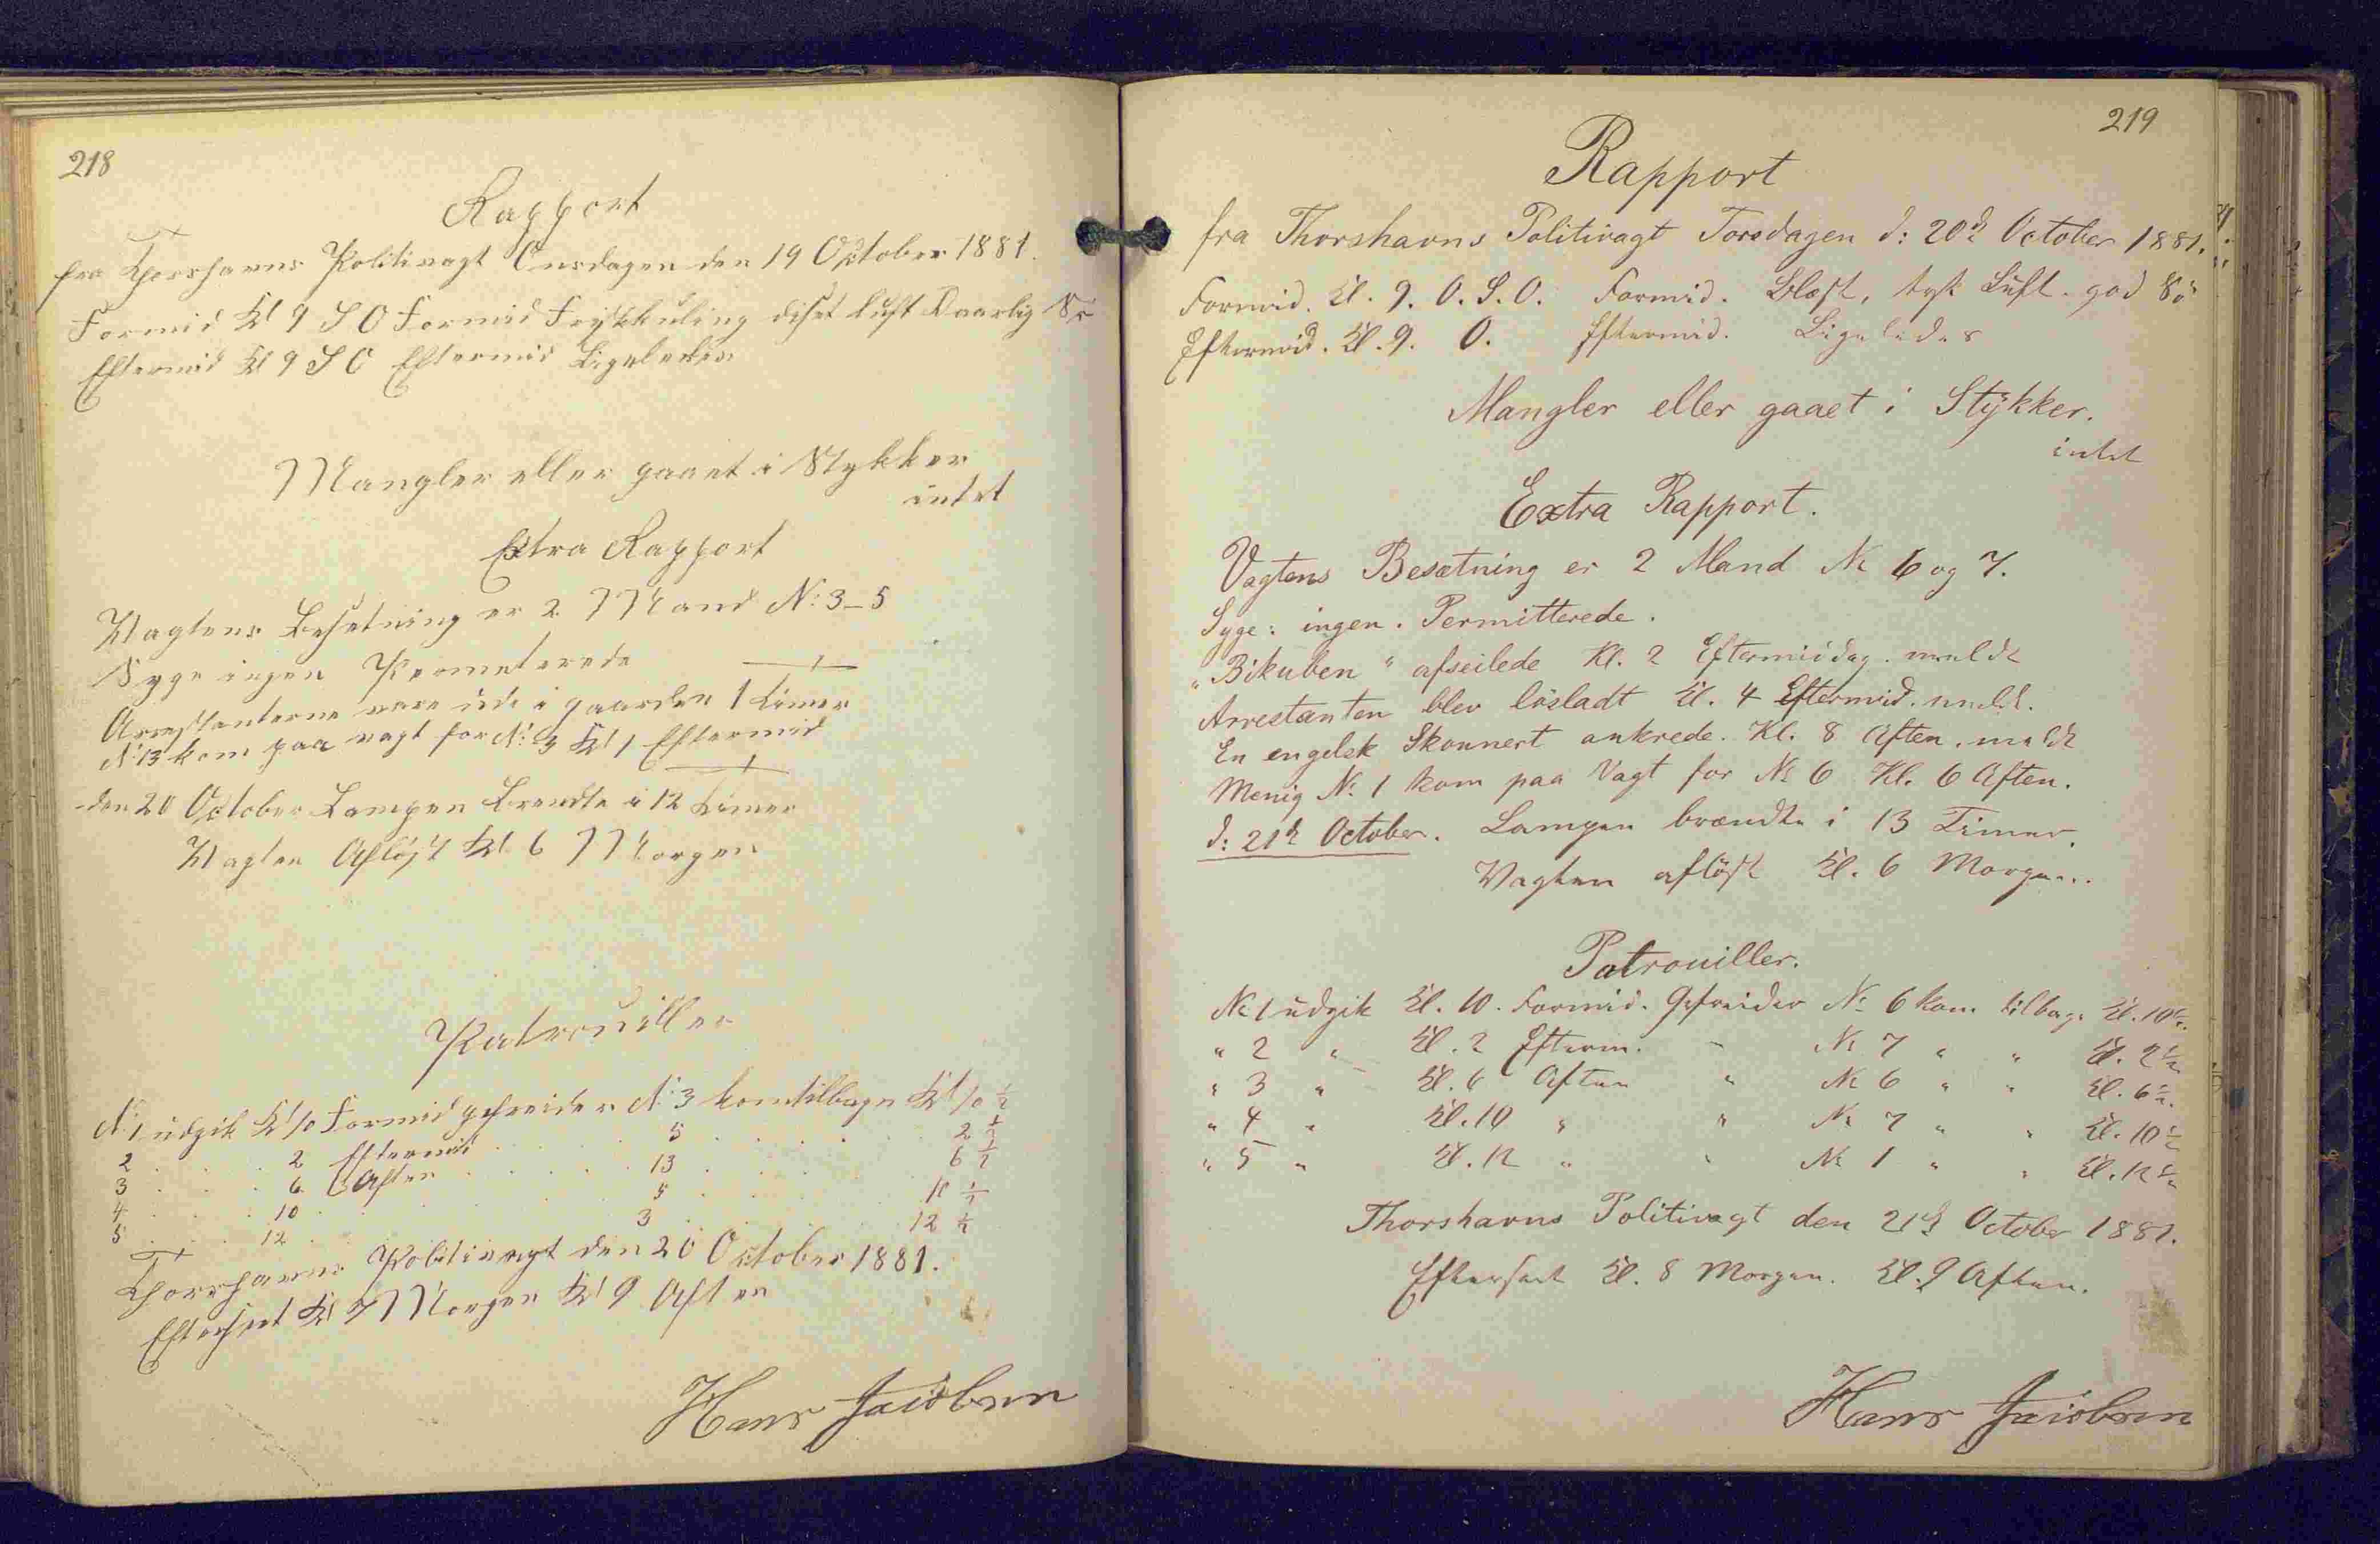 218
Rapport
fra Thorshavns Politivagt Onsdagen den 19 October 1881.
Formid Kl 9 S O Formid Friskkuling diset luft Daarlig Sø
Eftermid Kl 9 S O Eftermid Ligeledes
Mangler eller gaaet i Stykker
intet
Extra Rapport
Vagtens Besetning er 2 Mand N: 3-5
Syge ingen Permeterede
Arrestanterne vare ude i gaarden 1 Timer
N: 13 kom paa vagt for N: 3 Kl 1 Eftermid
den 20 October Lampen Brendte i 12 Timer
Vagten Afløst Kl 6 Morgen
Patrouiller
N: 1 udgik Kl 10 Formid gefreider N: 3 kom tilbage Kl 10 ½
2 . . . 2 Eftermid . . . 5 . . . 2 ½
3 . . . 6 Aften . . . 13 . . . 6 ½
4 . . . 10 . . . 5 . . . 10 ½
5 . . . 12 . . . 3 . . . 12 ½
Thorshavns Politivagt den 20 October 1881.
Efterseet Kl 7 Morgen Kl 9 Aften
Hans Jacobsen
219
Rapport
fra Thorshavns Politivagt Torsdagen d: 20d October 1881.
Formid. Kl. 9. O. S. O. Formid. Blæst, tyk Luft. god Sö
Eftermid. Kl. 9. O. Eftermid. Ligeledes
Mangler eller gaaet i Stÿkker.
intet
Extra Rapport.
Vagtens Besætning er 2 Mand No 6 og 7.
Syge: ingen. Permitterede.
"Bikuben" afseilede Kl. 2 Eftermiddag. meldt
Arrestanten blev lösladt Kl. 4 Eftermid. meld.
En engelsk Skonnert ankrede. Kl. 8 Aften. meldt
Menig No 1 kom paa Vagt for No 6 Kl. 6 Aften.
d: 21d October. Lampen brændte i 13 Timer.
Vagten aflöst Kl. 6 Morgen.
Patrouiller.
No 1 udgik Kl. 10. Formid. Gefreider No 6 kom tilbage Kl. 10½.
" 2 " Kl. 2 Efterm. " No 7 " " Kl. 2½
" 3 " Kl. 6 Aften " No 6 " " Kl. 6½.
" 4 " Kl. 10 " " No 7 " " Kl. 10½
" 5 " Kl. 12 " " No 1 " " Kl. 12½
Thorshavns Politivagt den 21d October 1881.
Efterseet Kl. 8 Morgen. Kl. 9 Aften.
Hans Jacobsen